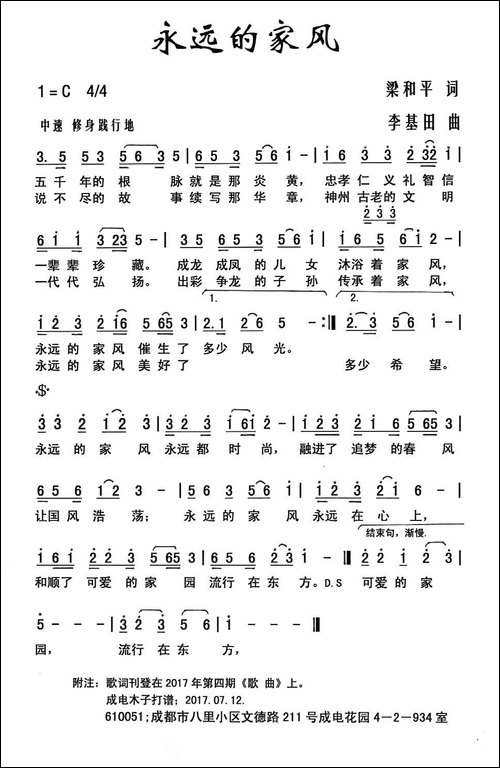 永远的家风
1=C 4/4 梁和平 词
中速 修身践行地 李基田 曲
3. 5 5 3 5 6 3 | 5 i 6 5 3 5 6 5 i - | i 6 3 2 3 2 3 2 |
五千年的根 脉就是那炎黄，忠孝仁义礼智信
说不尽的故 事续写那华章，神州古老的文明
2 3 3
6 i i 3 2 3 5 - | 3 5 3 5 6 5 i 3 | 2 3 5 6 6 i 2 - |
一辈辈珍藏。成龙成凤的儿女 沐浴着家风，
一代代弘扬。出彩争龙的子孙 传承着家风，
1. 2.
i 2 3 2 i 6 5 6 5 3 | 2. 1 2 6 5 - :| 2. 3 5 6 i - |
永远的家风催生了多少风光。
永远的家风美好了 多少希望。
3 3 2 1 2 3 | 3 2 3 1 6 i 2 - | 2 3 i 6 2 i 6 5 6 5 3 |
永远的家风永远都时尚，融进了追梦的春风
6 5 6 i 2 3 - | 5 6 5 3 5 6 i | i 2 3 2 i 2 - |
让国风浩荡；永远的家风永远在心上，
结束句，渐慢.
i 6 i 2 2 3 5 6 5 3 | 2 2 3 2 6 i - || i 2 i 2 2 3 |
和顺了可爱的家园流行在东方。D.S 可爱的家
5 - - - | 3 2 2 3 5 6 | i - - - ||
园，流行在东方，
附注：歌词刊登在2017年第四期《歌曲》上。
成电木子打谱；2017.07.12.
610051；成都市八里小区文德路211号成电花园4-2-934室